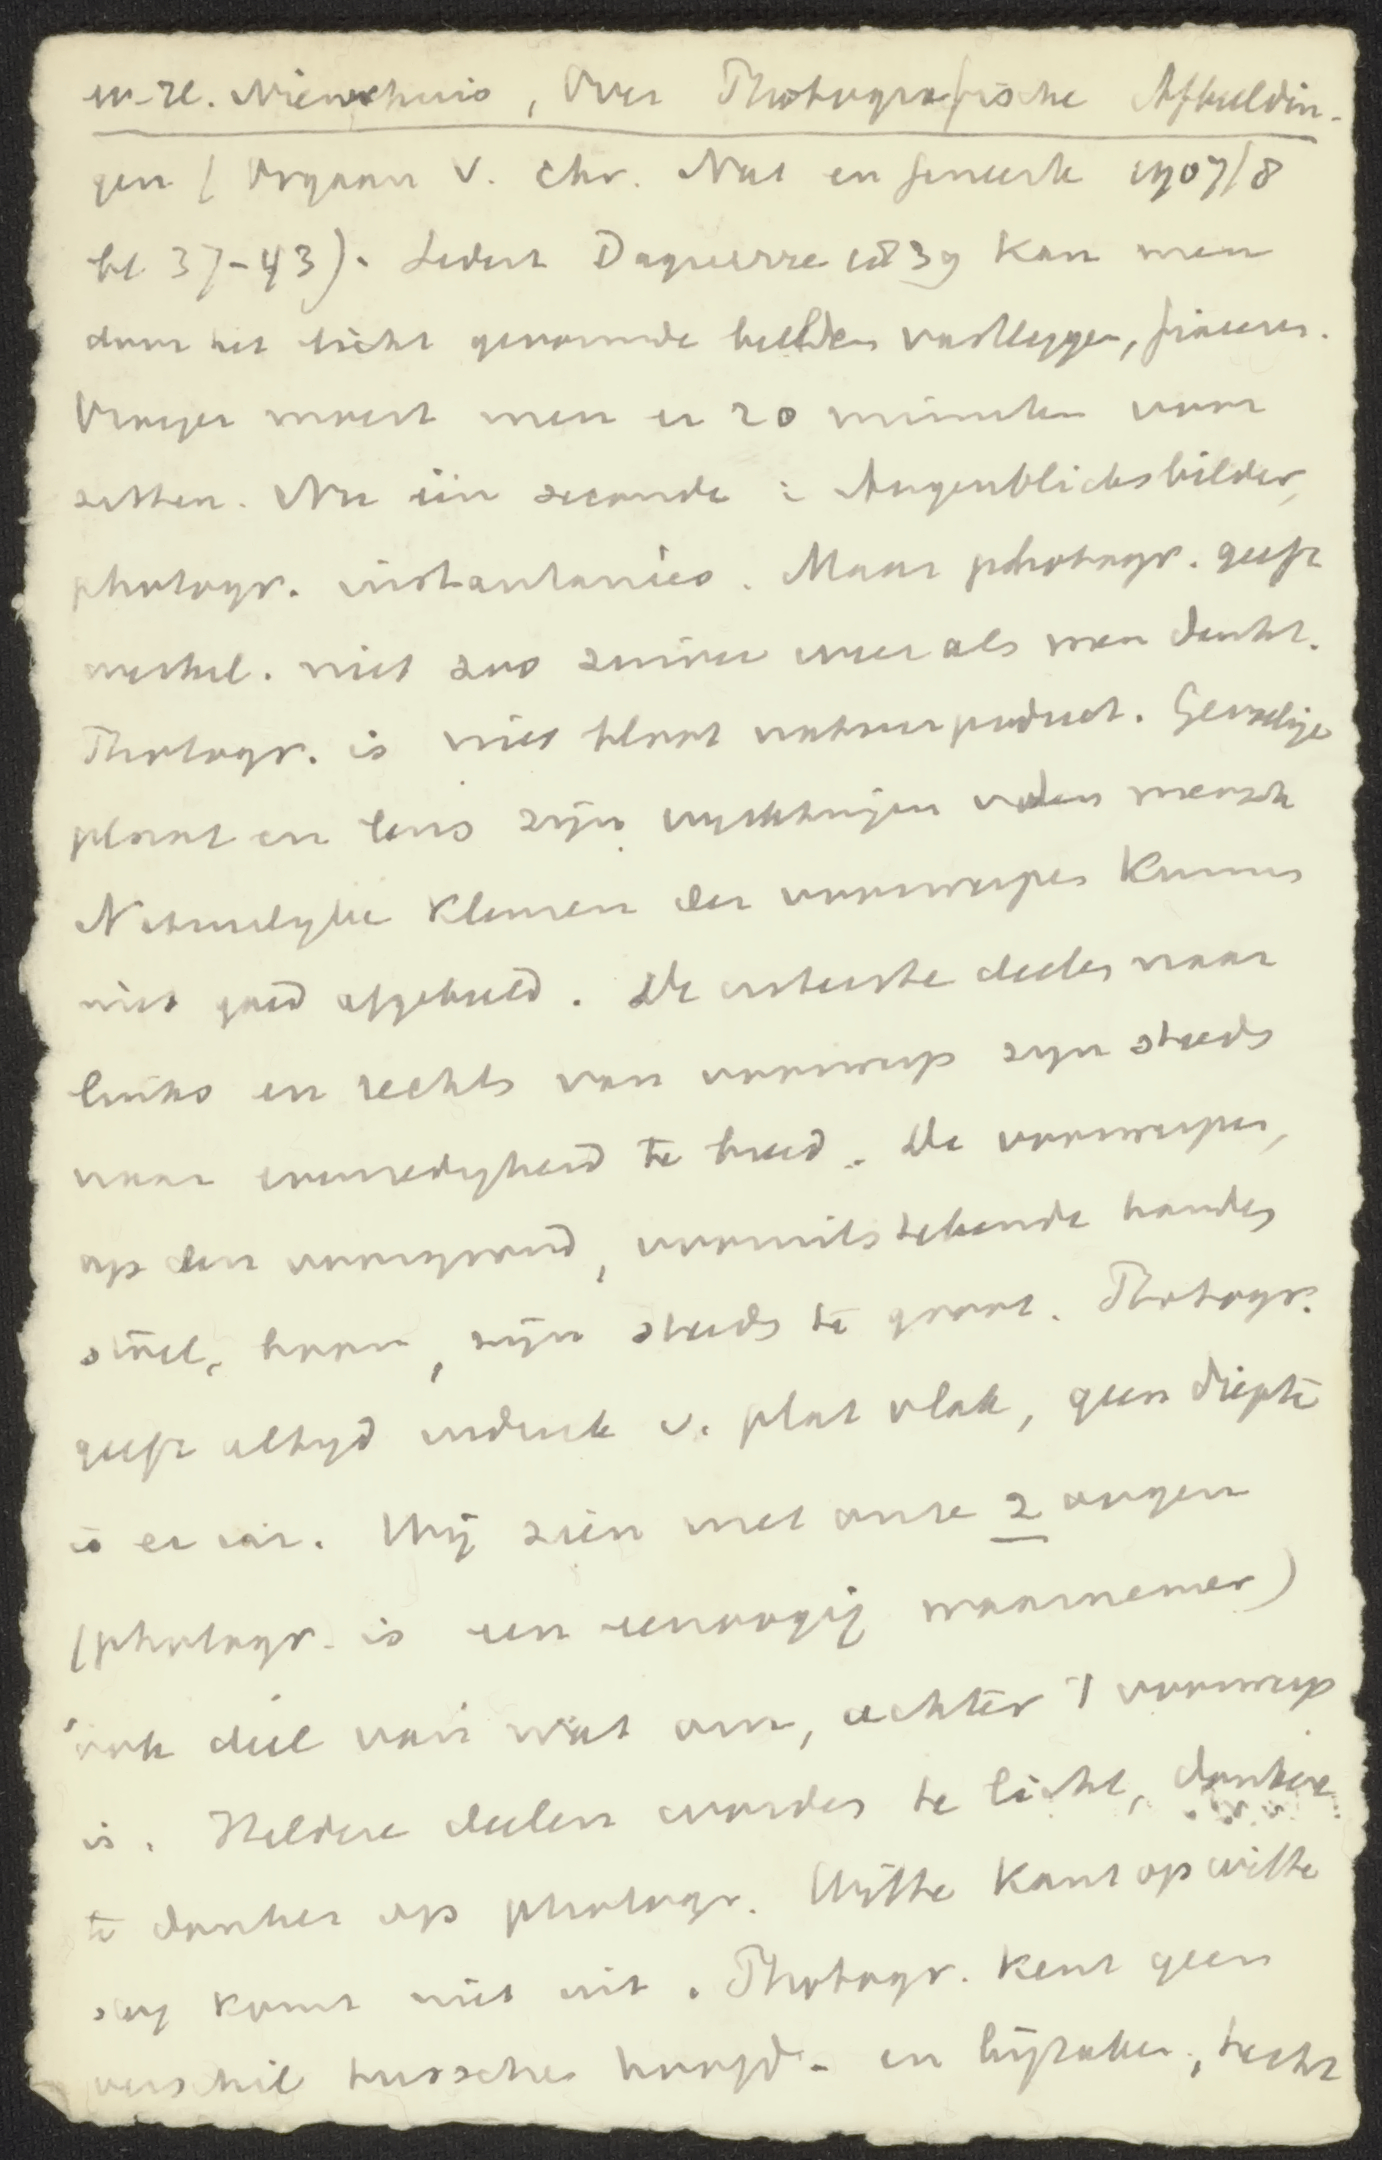 W.H. Nieuwhuis, Over Photografische Afbeeldin-
gen (Orgaan v. Chr. Nat en Geneesk 1907/8
bl 37-43). Sedert Daguerre 1839 kan men
door het licht gevormde beelden vastleggen, fixeeren.
Vroeger moest men er 20 minuten voor
zitten. Nu één seconde: Augenblicksbilder,
photogr. instantanées. Maar photogr. geeft
werkel. niet zoo zuiver weer als men denkt.
Photogr. is niet bloot natuurproduct. Gevoelige
plaat en lens zijn van den mensch
Natuurlyke kleuren der voorwerpen kunnen
niet goed afgebeeld. De uiterste deelen naar
links en rechts van voorwerp zyn steeds
naar evenredigheid te breed. De voorwerpen,
op den voorgrond, vooruitstekende handen
stoel, boom, zijn steeds te groot. Photogr.
geeft altyd indruk v. plat vlak, geen diepte
is er in. Wij zien met onze 2 oogen
(photogr. is een eenoogig waarnemer)
ook deel van wat om, achter 't voorwerp
is. Heldere deelen worden te licht, donkere
te donker op photogr. Witte kant op witte
komt niet uit. Photogr. kent geen
verschil tusschen hoofd- en bijzaken,